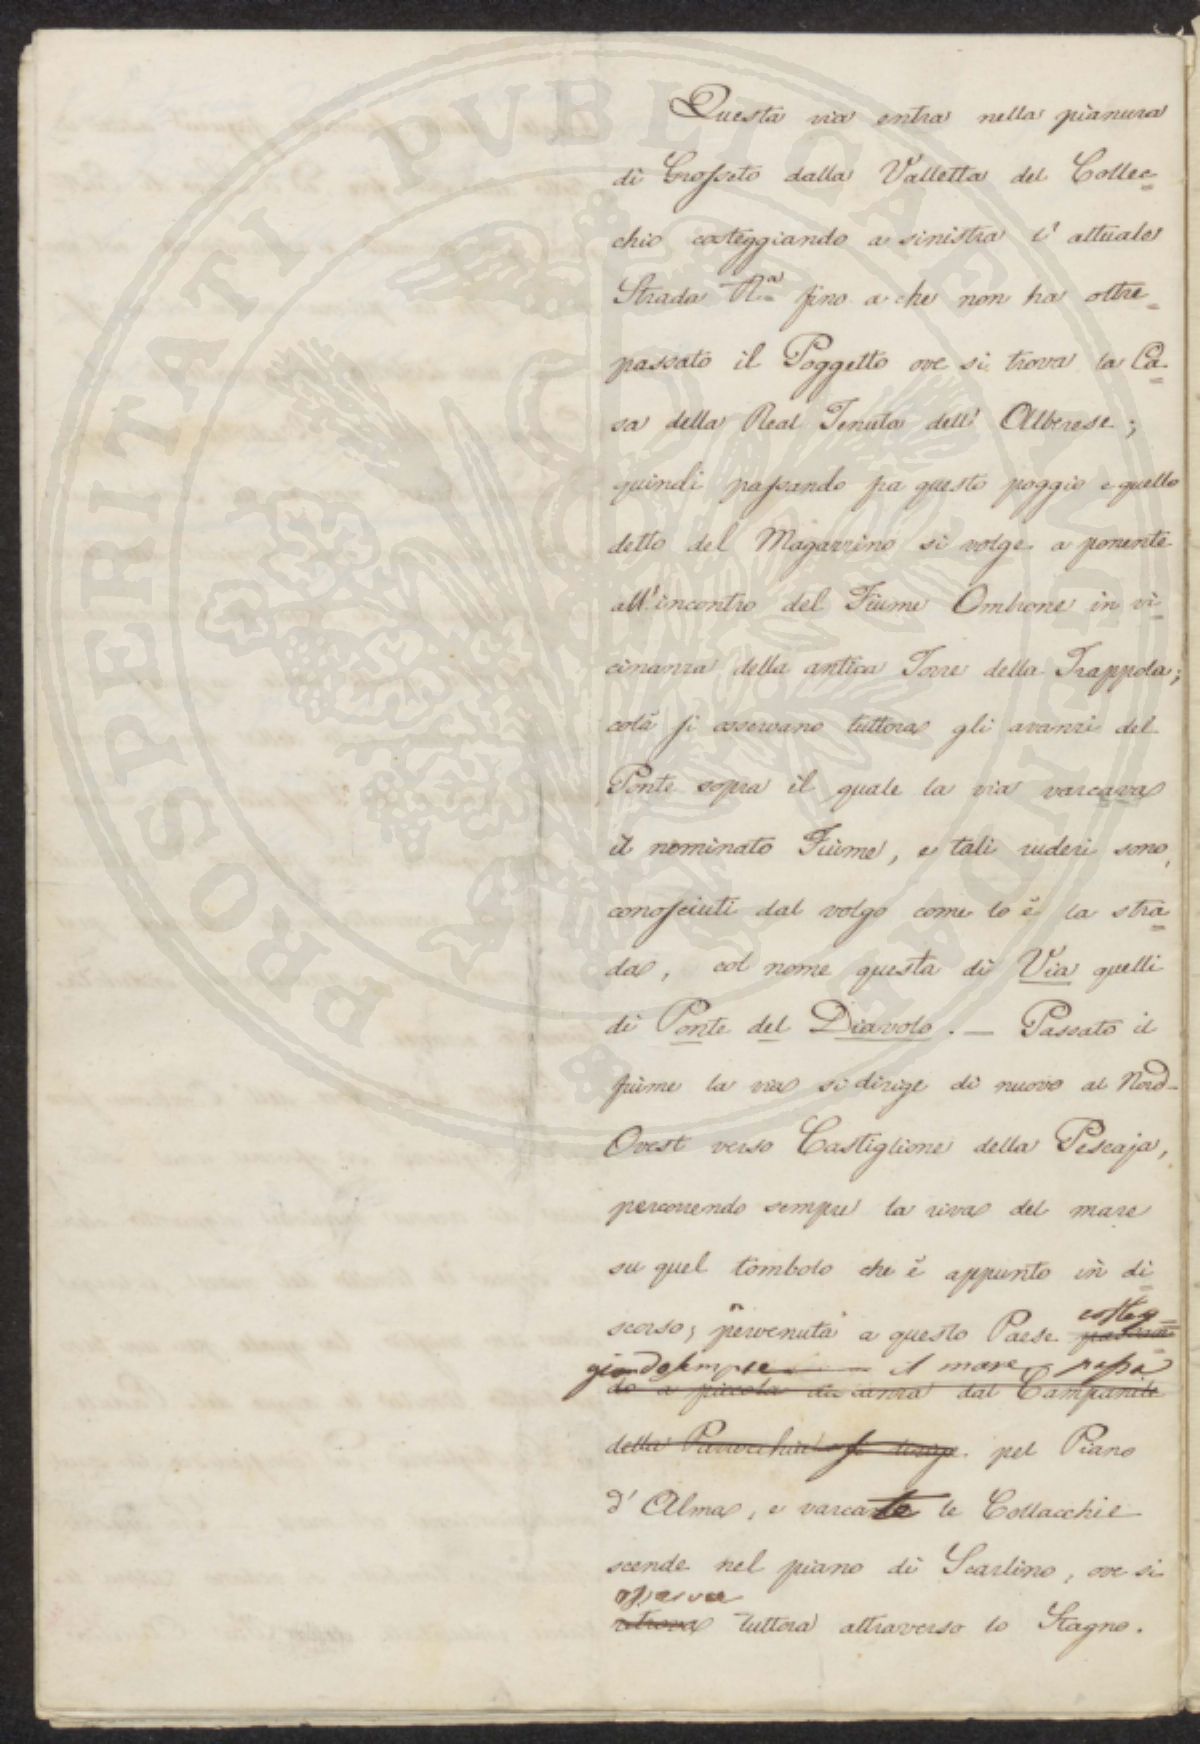 Questa via entra nella pianura
di Grosseto dalla Valletta del Collec=
chio costeggiando a sinistra l'attuale
Strada R.ª fino a che non ha oltre=
passato il Poggetto ove si trova la Ca=
sa della Real Tenuta dell'Alberese;
quindi passando fra questo poggio e quello
detto del Magazzino si volge a ponente
all'incontro del Fiume Ombrone in vi=
cinanza della antica Torre della Trappola;
colà si osservano tuttora gli avanzi del
Ponte sopra il quale la via varcava
il nominato Fiume, e tali ruderi sono,
conosciuti dal volgo come lo è la stra=
da, col nome questa di Via quelli
di Ponte del Diavolo. — Passato il
fiume la via si dirige di nuovo al Nord-
Ovest verso Castiglione della Pescaja,
percorrendo sempre la riva del mare
su quel tombolo che è appunto in di=
scorso; pervenuta a questo Paese costeg=
giando sempre il mare, passa
do a piccola distanza dal Campanile
della Parrocchia si dirige pel Piano
d'Alma, e varcate le Collacchie
scende nel piano di Scarlino, ove si
osserva
ritrova tuttora attraverso lo Stagno.
PROSPERITATI PVBLICAE AVGENDAE